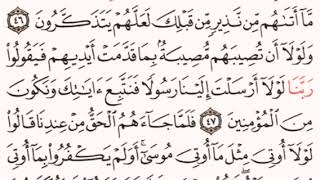 مَّآ أَتَىٰهُم مِّن نَّذِيرٍ مِّن قَبْلِكَ لَعَلَّهُمْ يَتَذَكَّرُونَ ٤٦
وَلَوْلَآ أَن تُصِيبَهُم مُّصِيبَةٌۢ بِمَا قَدَّمَتْ أَيْدِيهِمْ فَيَقُولُوا۟
رَبَّنَا لَوْلَآ أَرْسَلْتَ إِلَيْنَا رَسُولًا فَنَتَّبِعَ ءَايَٰتِكَ وَنَكُونَ
مِنَ ٱلْمُؤْمِنِينَ ٤٧ فَلَمَّا جَآءَهُمُ ٱلْحَقُّ مِنْ عِندِنَا قَالُوا۟
لَوْلَآ أُوتِىَ مِثْلَ مَآ أُوتِىَ مُوسَىٰٓ ۚ أَوَلَمْ يَكْفُرُوا۟ بِمَآ أُوتِىَ